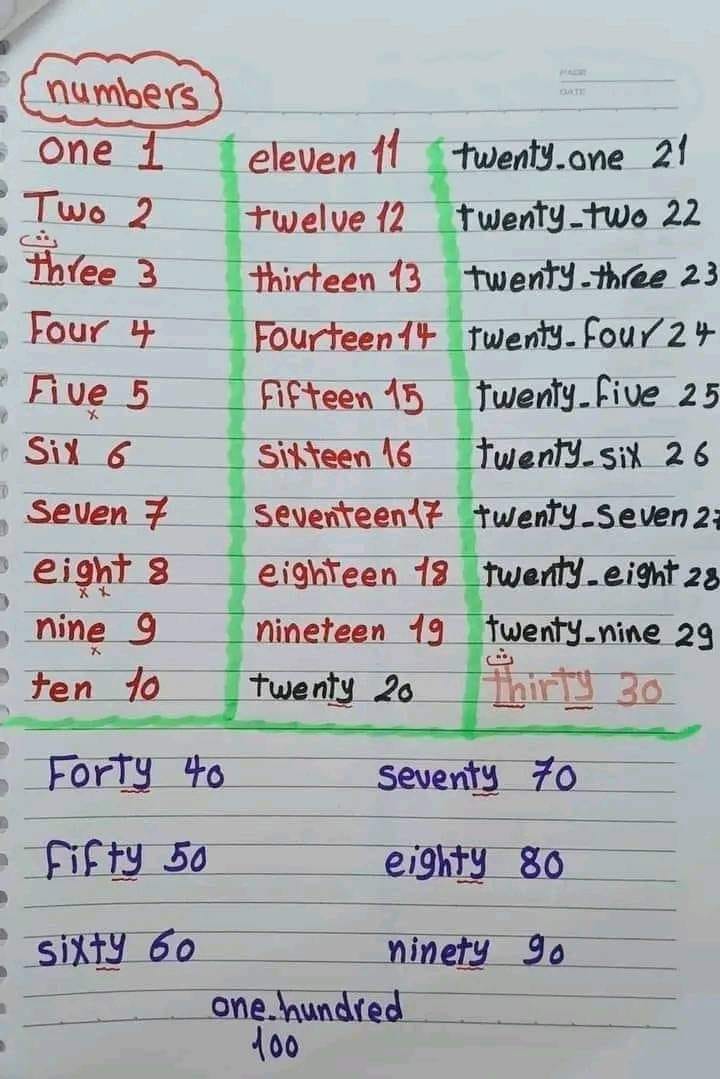 PAGE
DATE
numbers
one 1
Two 2
ث
three 3
Four 4
Five 5
x
Six 6
seven 7
eight 8
x x
nine 9
x
ten 10
eleven 11
twelve 12
thirteen 13
Fourteen 14
Fifteen 15
sixteen 16
seventeen 17
eighteen 18
nineteen 19
twenty 20
twenty-one 21
twenty-two 22
twenty-three 23
twenty-four 24
twenty-five 25
twenty-six 26
twenty-seven 27
twenty-eight 28
twenty-nine 29
ث
thirty 30
Forty 40
seventy 70
Fifty 50
eighty 80
sixty 60
ninety 90
one-hundred
100